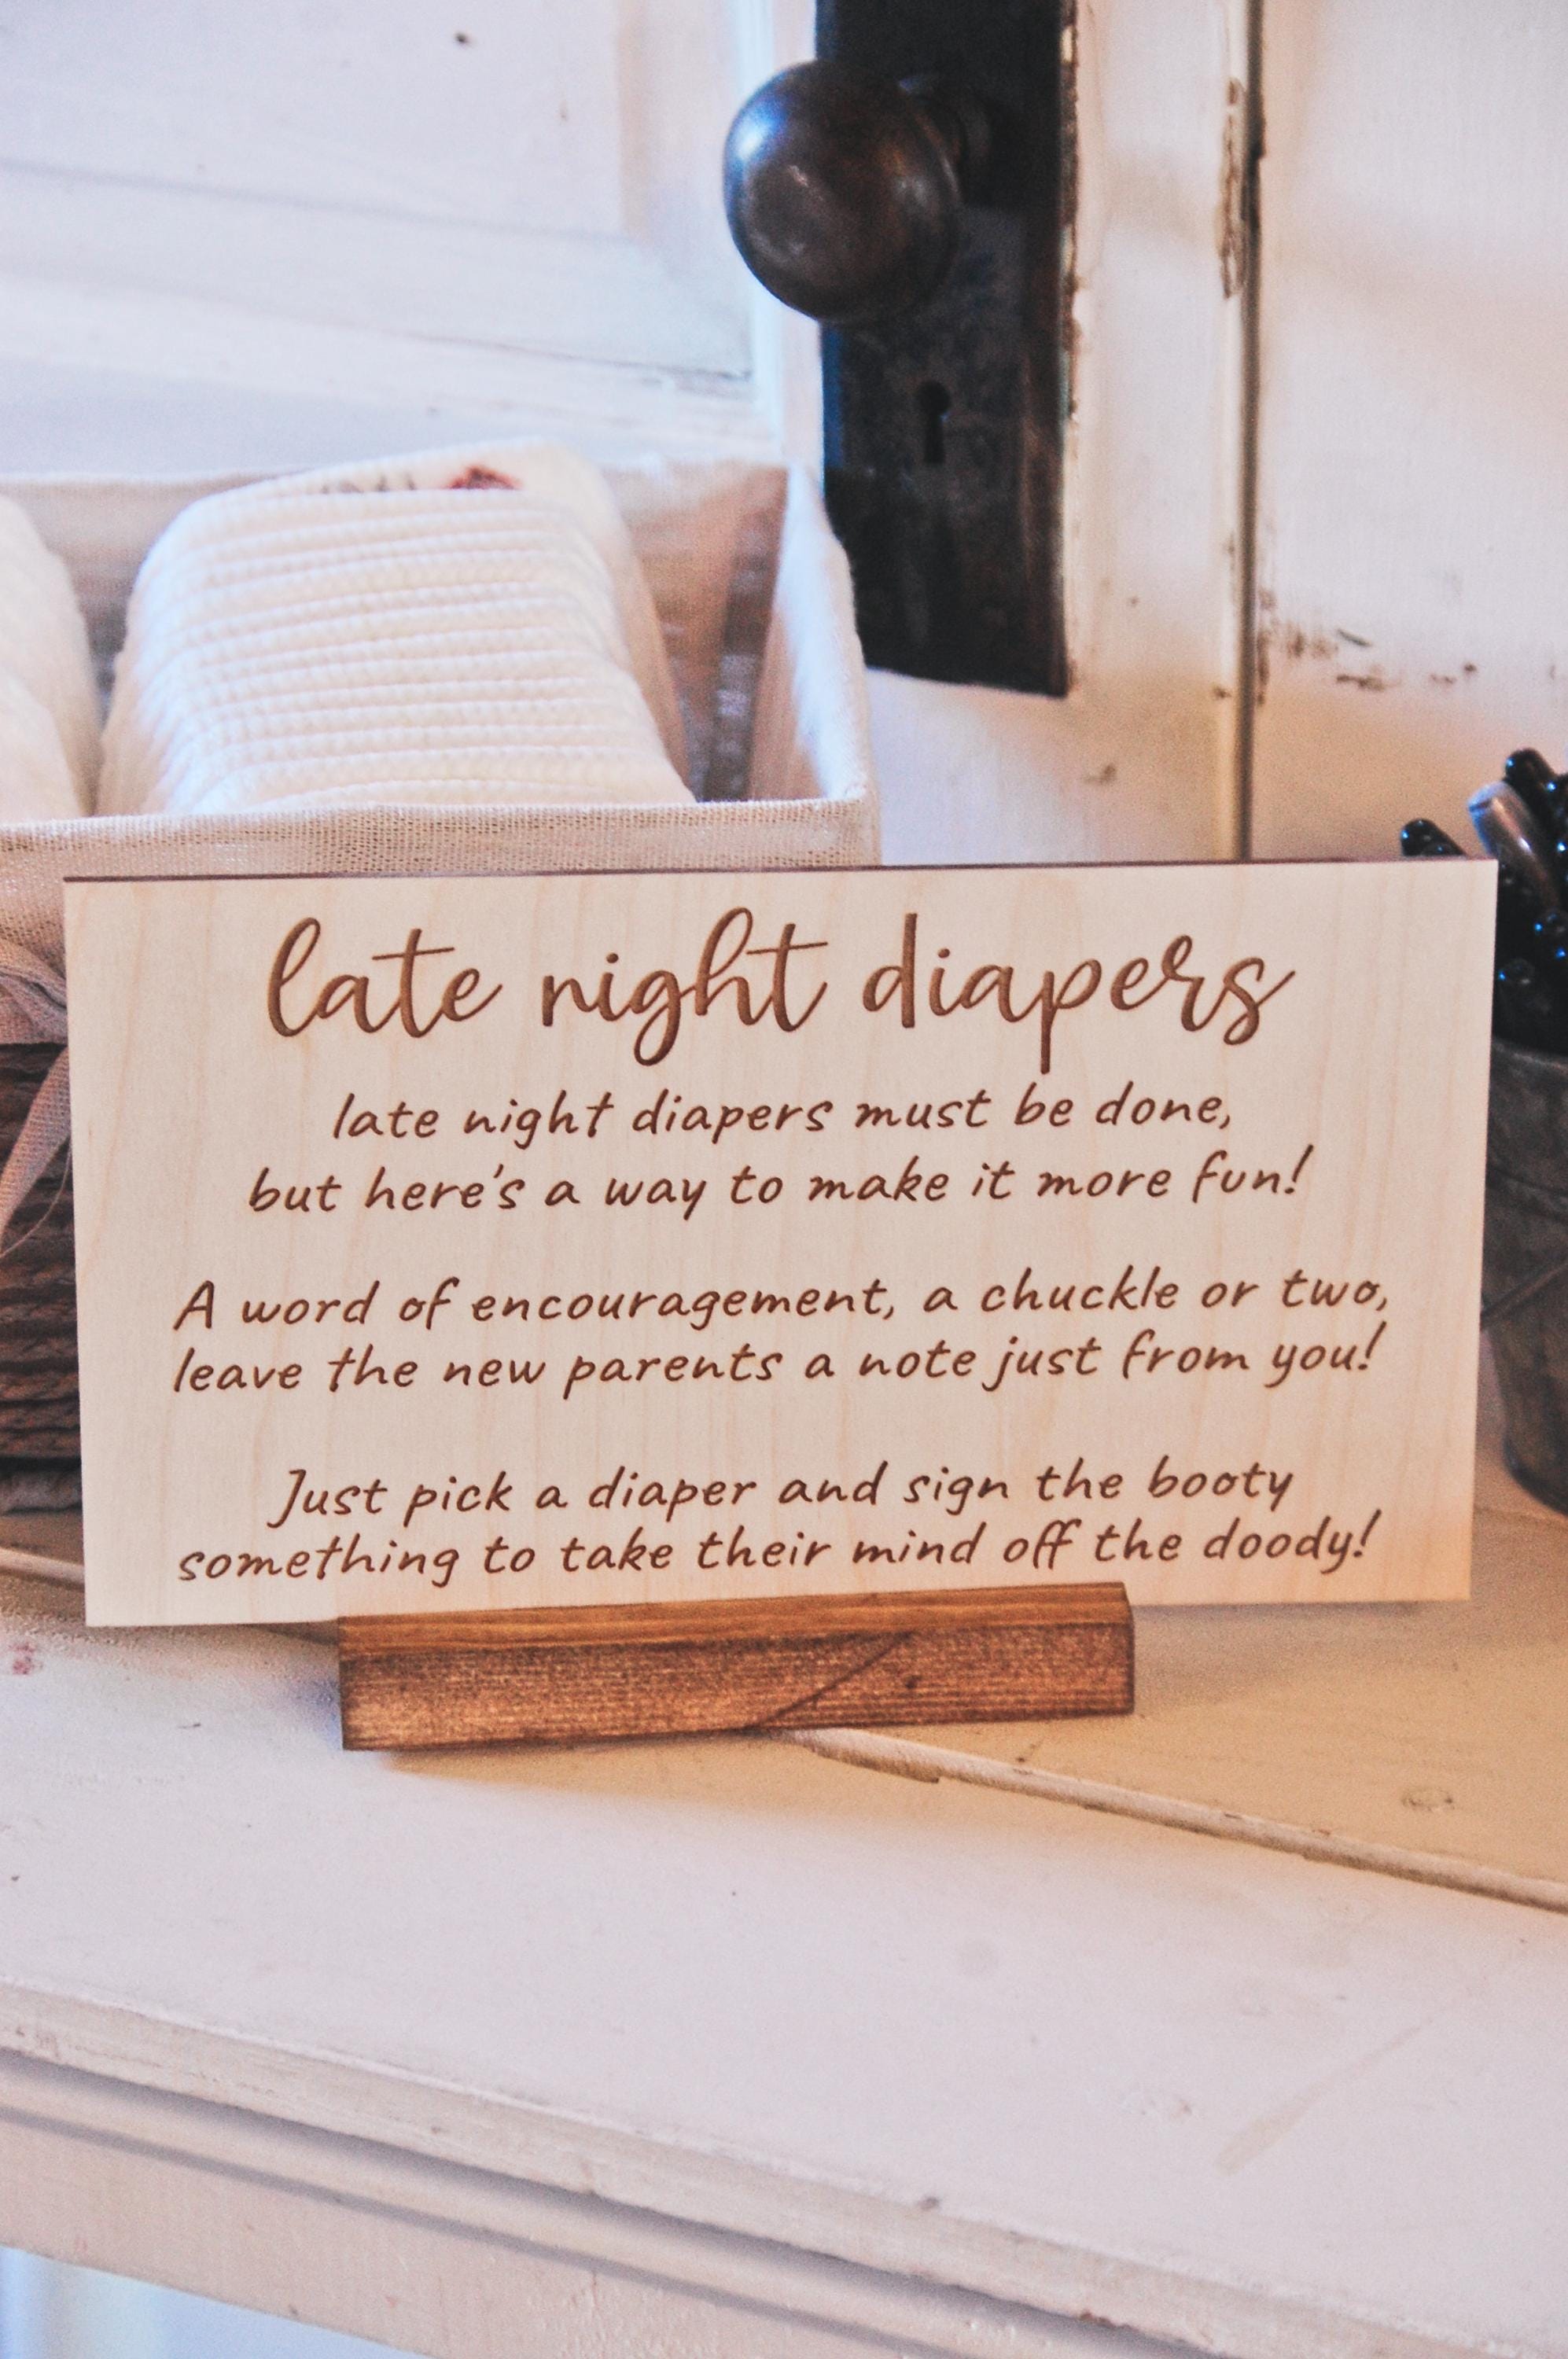 late night diapers
late night diapers must be done,
but here's a way to make it more fun!
A word of encouragement, a chuckle or two,
leave the new parents a note just from you!
Just pick a diaper and sign the booty
something to take their mind off the doody!